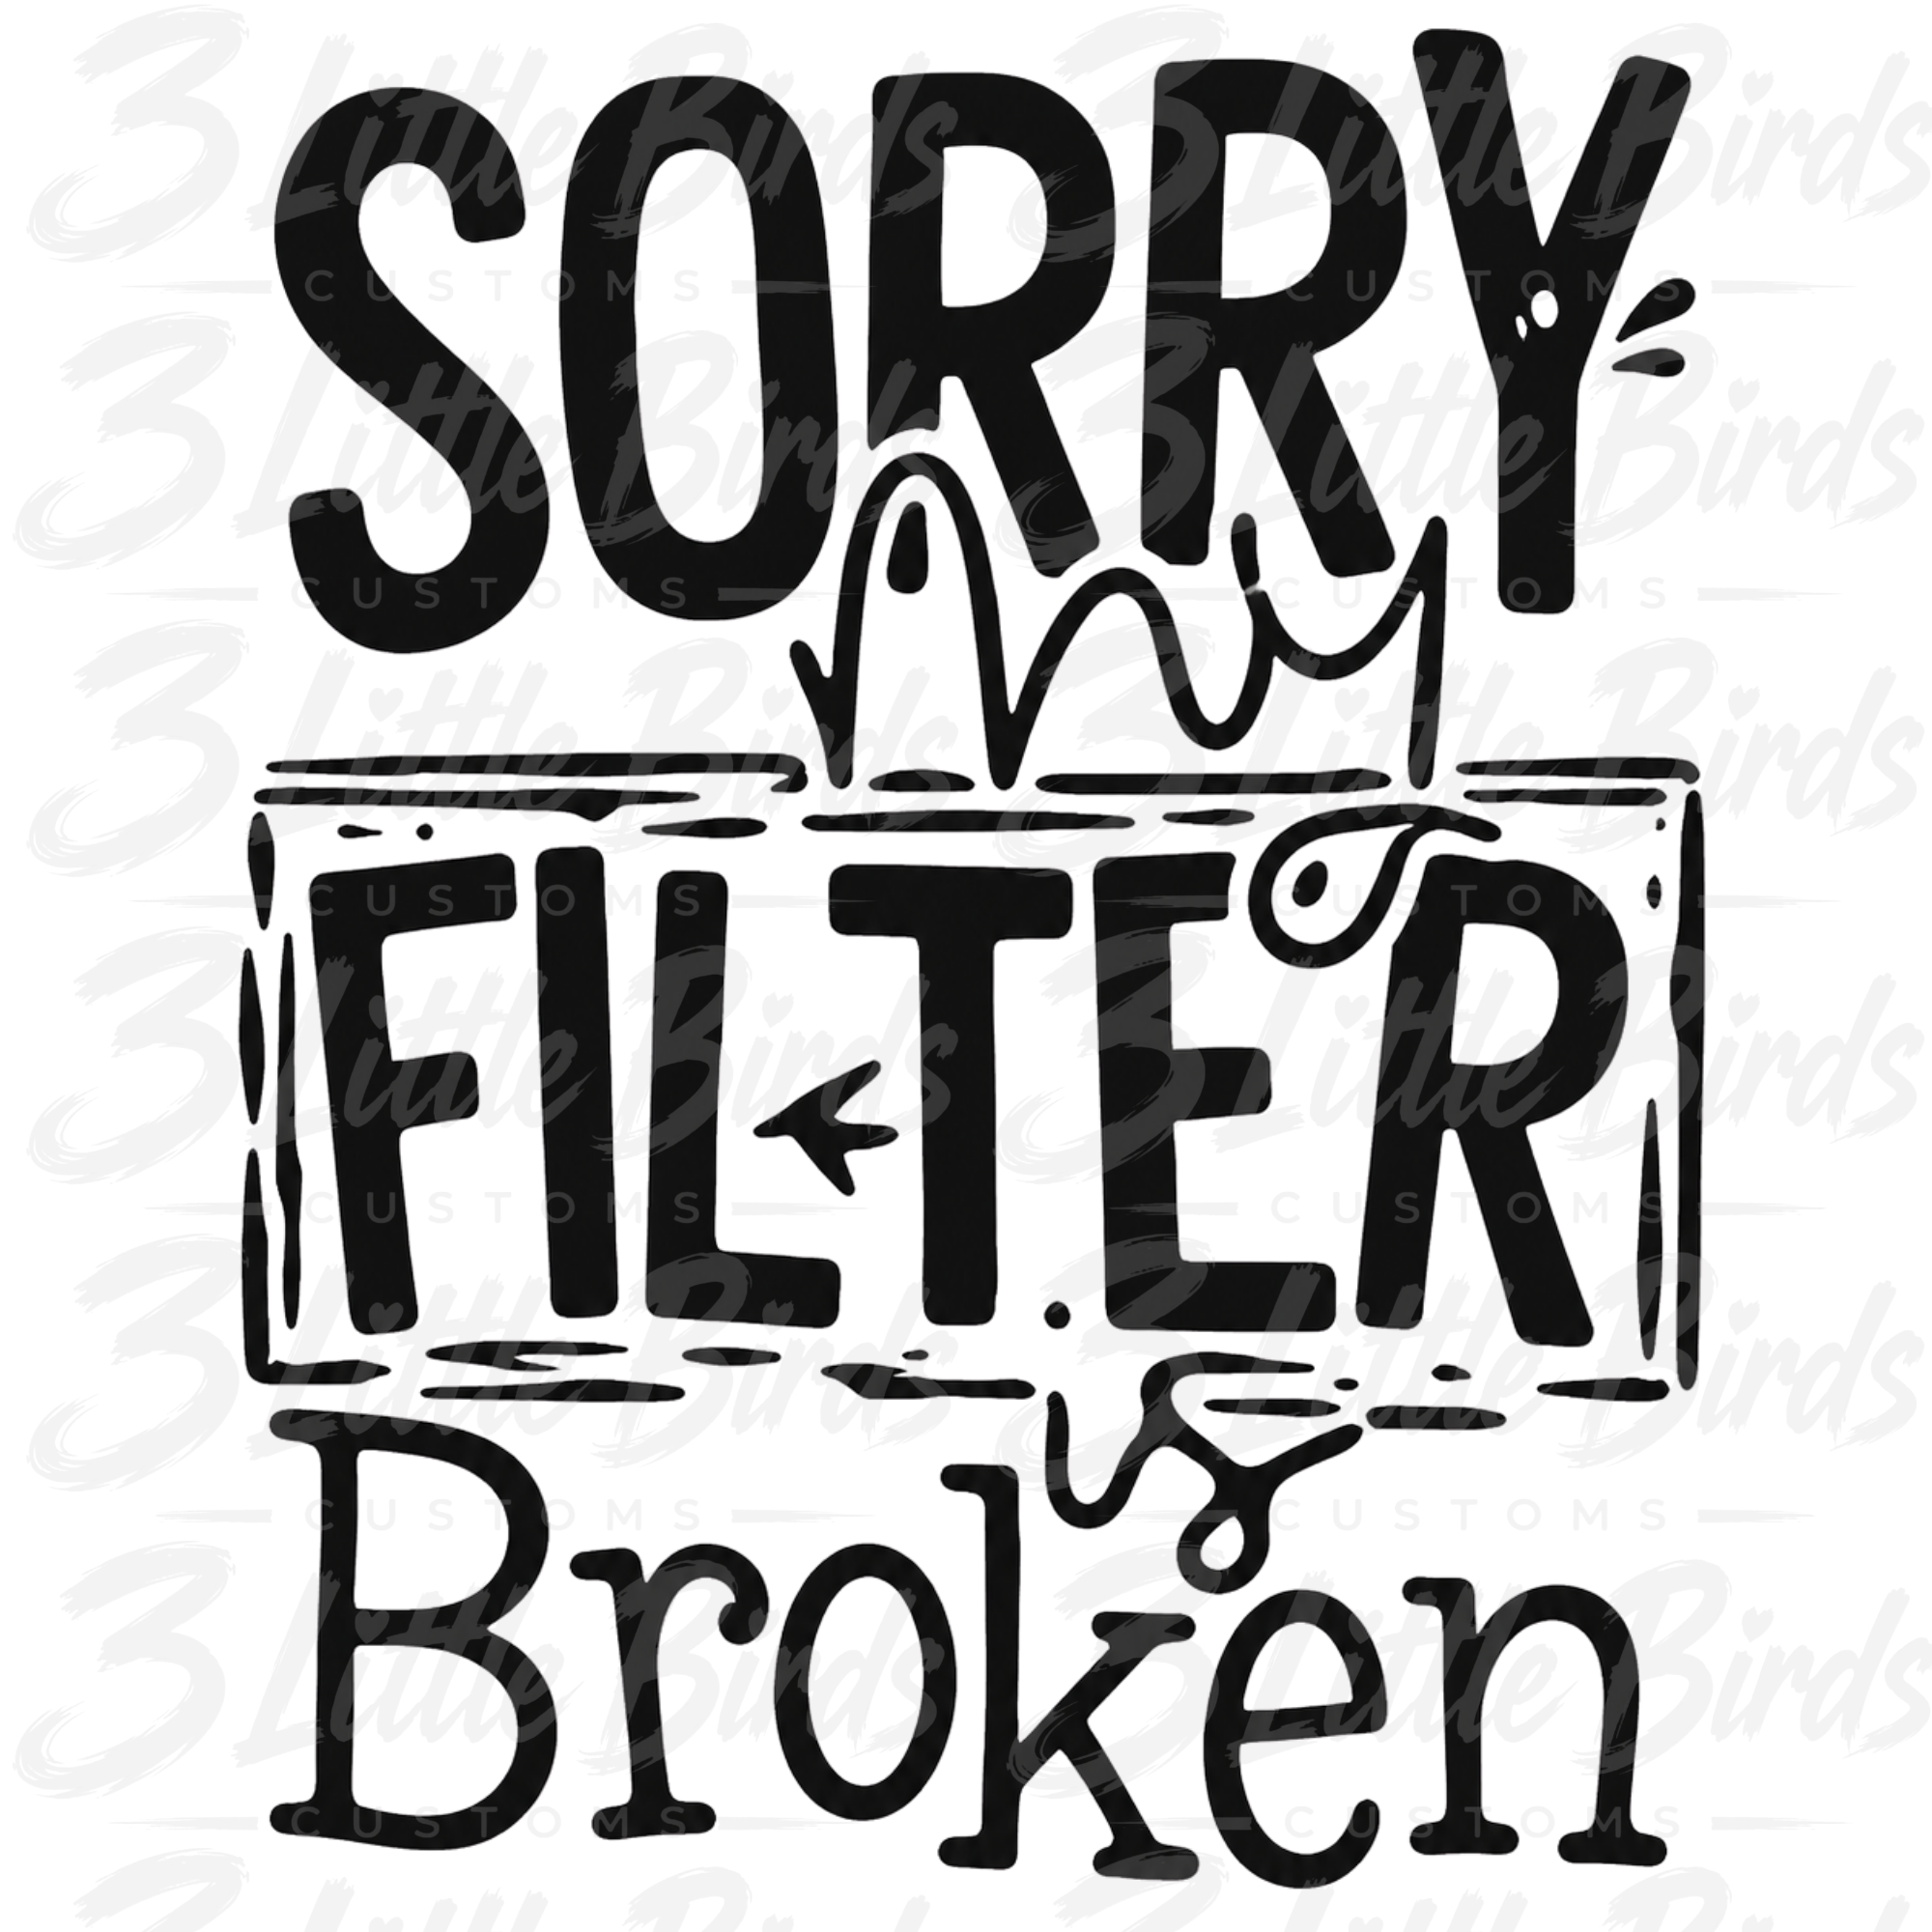 SORRY
my
FILTER
is
Broken
3 Little Birds
CUSTOMS